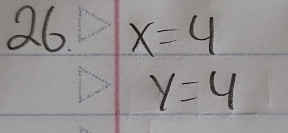 26. x=4
y=4